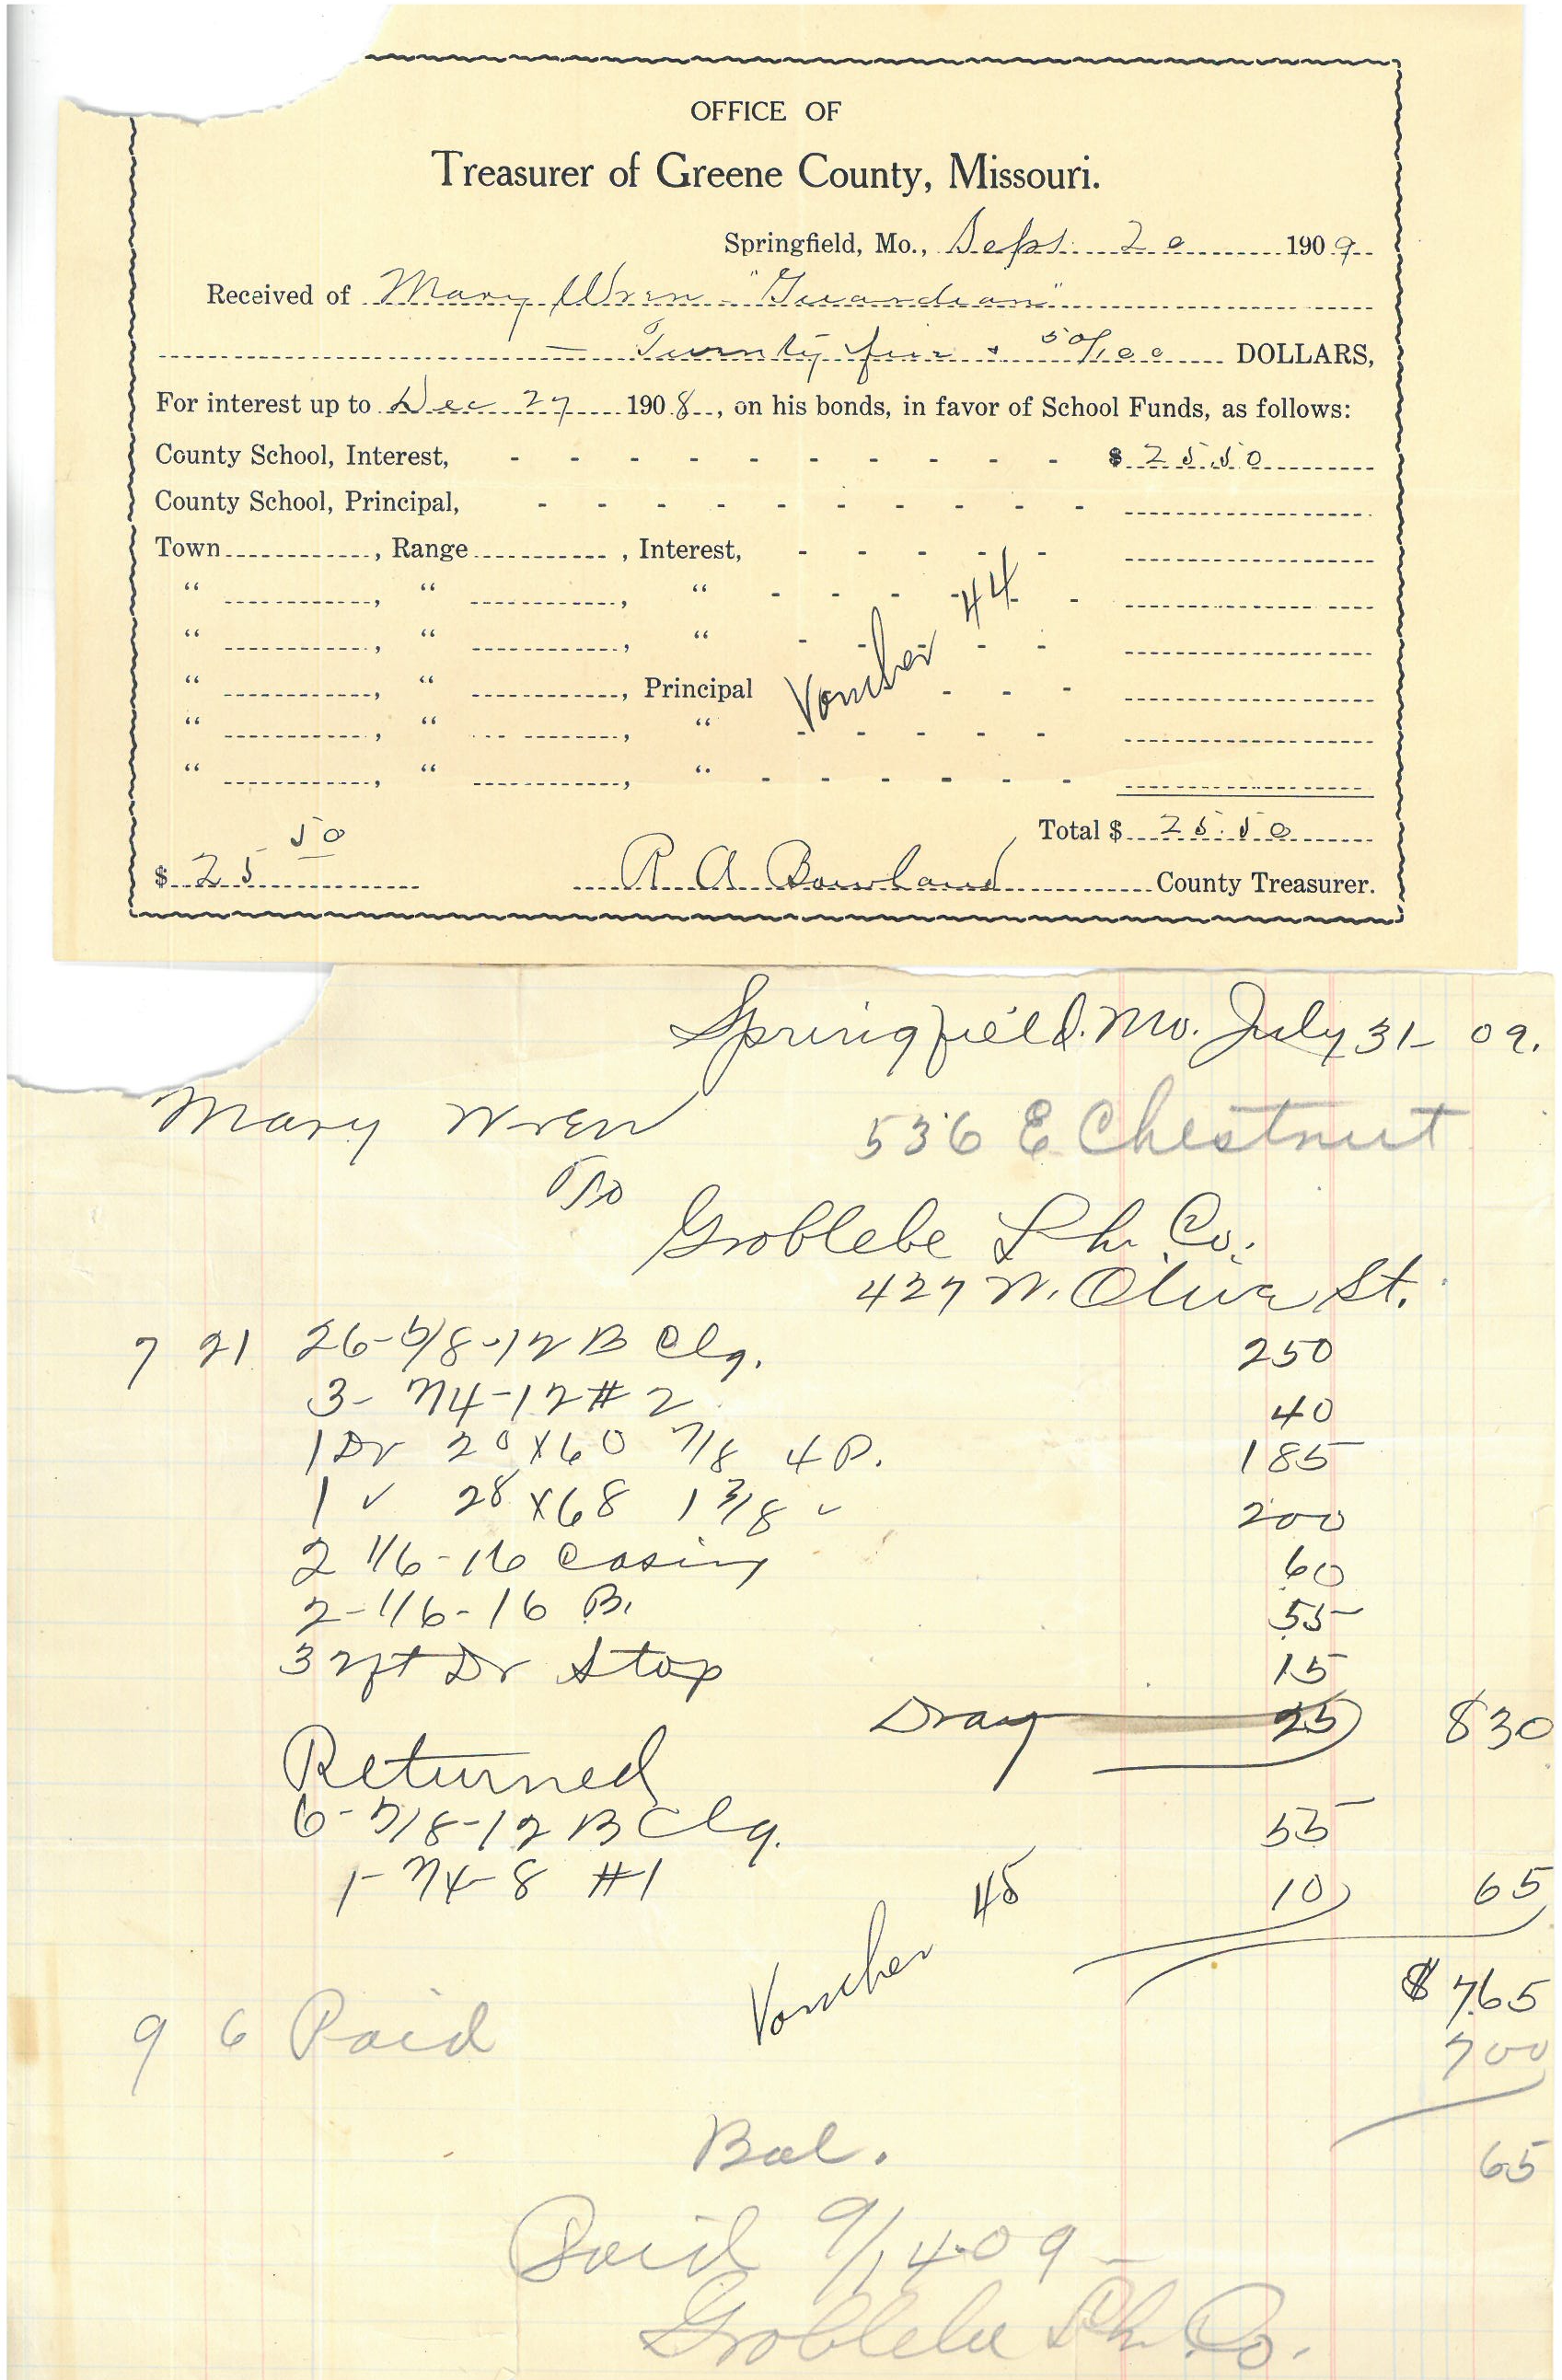 OFFICE OF
Treasurer of Greene County, Missouri.
Springfield, Mo., Sept. 20 1909
Received of Mary Wren "Guardian"
Twenty five & 50/100 DOLLARS,
For interest up to Dec 27 1908, on his bonds, in favor of School Funds, as follows:
County School, Interest, - - - - - - - - - - $ 25.50
County School, Principal, - - - - - - - - - -
Town , Range , Interest, - - - - -
“ , “ , “ - - - - - -
“ , “ , “ - - - - -
“ , “ , Principal - - -
“ , “ , “ - - - - -
“ , “ , “ - - - - - -
Voucher 44
Total $ 25.50
$ 25 50
R A County Treasurer.
Springfield. Mo. July 31- 09.
Mary Wren 536 E Chestnut
To
Co.
427 W. Olive St.
7 21 26-5/8-12 B Clg. 250
3- 7/4-12 #2 40
1 Dr 20 X 60 7/8 4 P. 185
1 ✓ 28 X 68 1 3/8 ✓ 200
2 1/6-16 Casing 60
2-1/6-16 B. 55
32ft Dr Stop 15
Dray 25 830
Returned
6-5/8-12 B Clg. 55
1-7/4-8 #1 10 65
Voucher 45
$ 7.65
9 6 Paid 700
Bal. 65
Paid 9/14-09
Co.